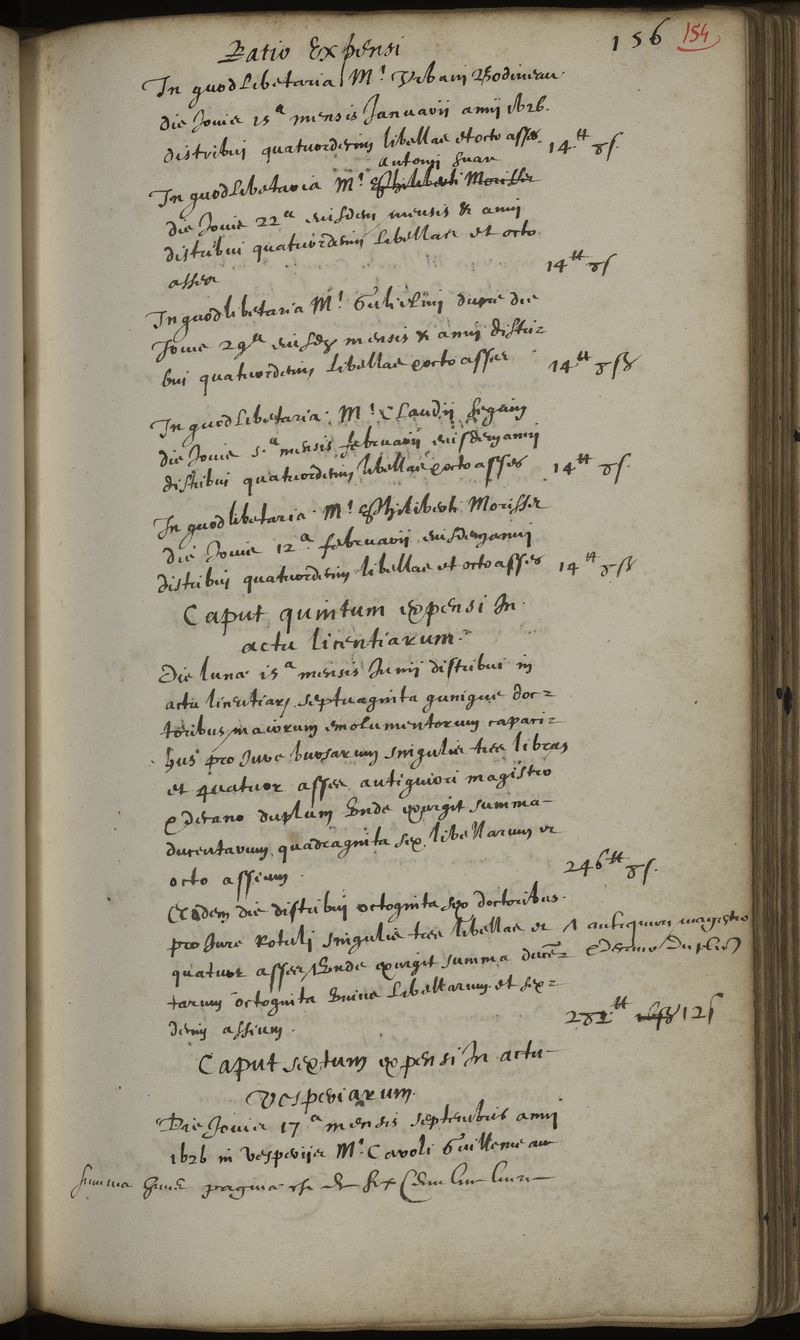 156 154
Ratio Expensi
In quodlibetaria M.ʳ Urbani Bodineau
die Jovis 15ª mensis Januarii anni 1626.
distribui quatuordecim libellas et octo asses. 14ᵗᵗ 8ſ.
Antonii
In quodlibetaria M.ʳ Philiberti Morisse
die Jovis 22ª eiusdem mensis & anni
distribui quatuordecim libellas et octo
asses 14ᵗᵗ 8ſ
In quodlibetaria M.ʳ Gulielmi dupre die
Jovis 29ª eiusdem mensis & anni distri=
bui quatuordecim libellas & octo asses 14ᵗᵗ 8ſ
In quodlibetaria M.ʳ Claudii Seguin
die Jovis 5.ª mensis februarii eiusdem anni
distribui quatuordecim libellas & octo asses 14ᵗᵗ 8ſ.
In quodlibetaria M.ʳ Philiberti Morisse
die Jovis 12ª februarii eiusdem anni
distribui quatuordecim libellas et octo asses 14ᵗᵗ 8ſ
Caput quintum expensi In
actu licentiarum.
Die lunæ 15ª mensis Junii distribui in
actu licentiar. septuaginta quinque doc=
toribus maiorum emolumentorum capaci=
bus pro Jure bursarum singulis tres libras
et quatuor asses antiquiori magistro
& decano duplum Unde exurgit summa
ducentarum quadraginta sex libellarum et
octo assium. 246ᵗᵗ 8ſ.
Eadem die distribui octoginta sex doctoribus
pro Jure Rotuli singulis tres libellas et ʌ antiquiori magistro
quatuor asses ʌ Unde exurgit summa ducē= & decano duplum
tarum octoginta unius libellarum et sex=
decim assium. 281ᵗᵗ 12ſ
Caput sextum expensi In actu
Vesperiarum.
Die Jovis 17ª mensis septembris anni
1626 in Vesperiis M.ʳ Caroli Guillemeau
Summa huius paginæ est